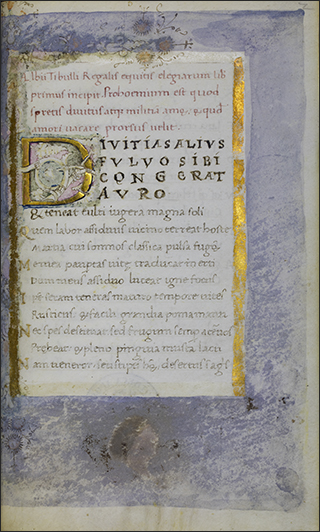 Albii Tibulli Regalis equitis elegiarum lib
primus incipit. Prohoemium est quod
spretis divitiis atq; militia & quod
amori vacare prorsus velit
DIVITIAS ALIVS
FVLVO SIBI
CONGERAT
AVRO
& teneat culti iugera magna soli
Quem labor assiduus vicino terreat hoste
Martia cui somnos classica pulsa
Me mea traducat inerti
Dum meus assiduo luceat igne focus
Ipse seram teneras maturo tempore vites
Rusticus & facili grandia poma manu
Nec spes destituat sed frugum semp acervos
Prebeat & pleno pinguia musta lacu
Nam veneror seu stipes desertus